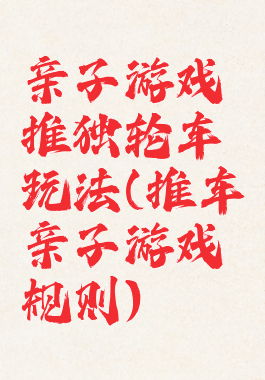 亲子游戏
推独轮车
玩法(推车
亲子游戏
规则)